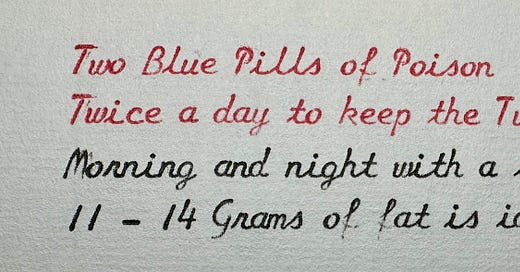 Two Blue Pills of Poison
Twice a day to keep the
Morning and night with a
11 - 14 Grams of fat is